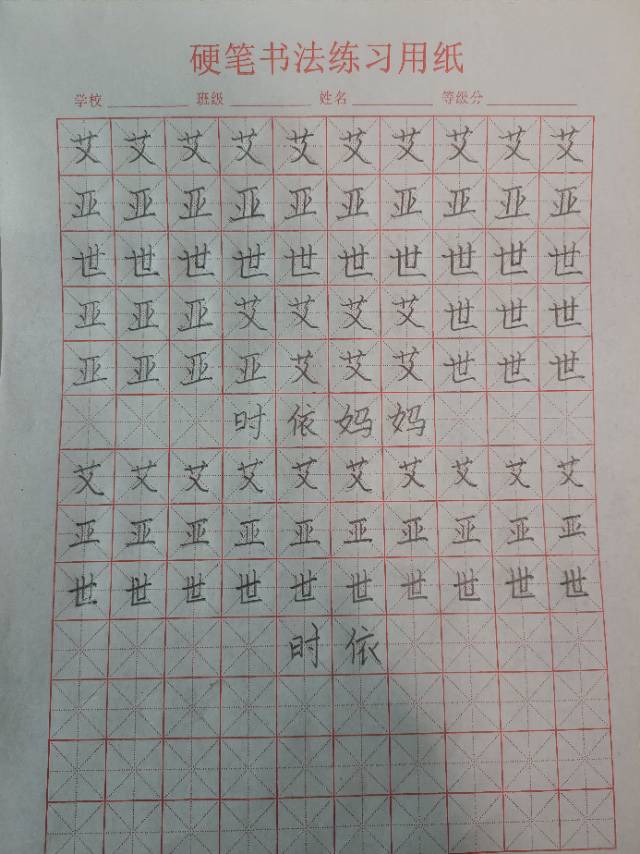 硬笔书法练习用纸
学校 班级 姓名 等级分
艾艾艾艾艾艾艾艾艾艾
亚亚亚亚亚亚亚亚亚亚
世世世世世世世世世世
亚亚亚艾艾艾艾世世世
亚亚亚亚艾艾艾世世世
时依妈妈
艾艾艾艾艾艾艾艾艾艾
亚亚亚亚亚亚亚亚亚亚
世世世世世世世世世世
时依